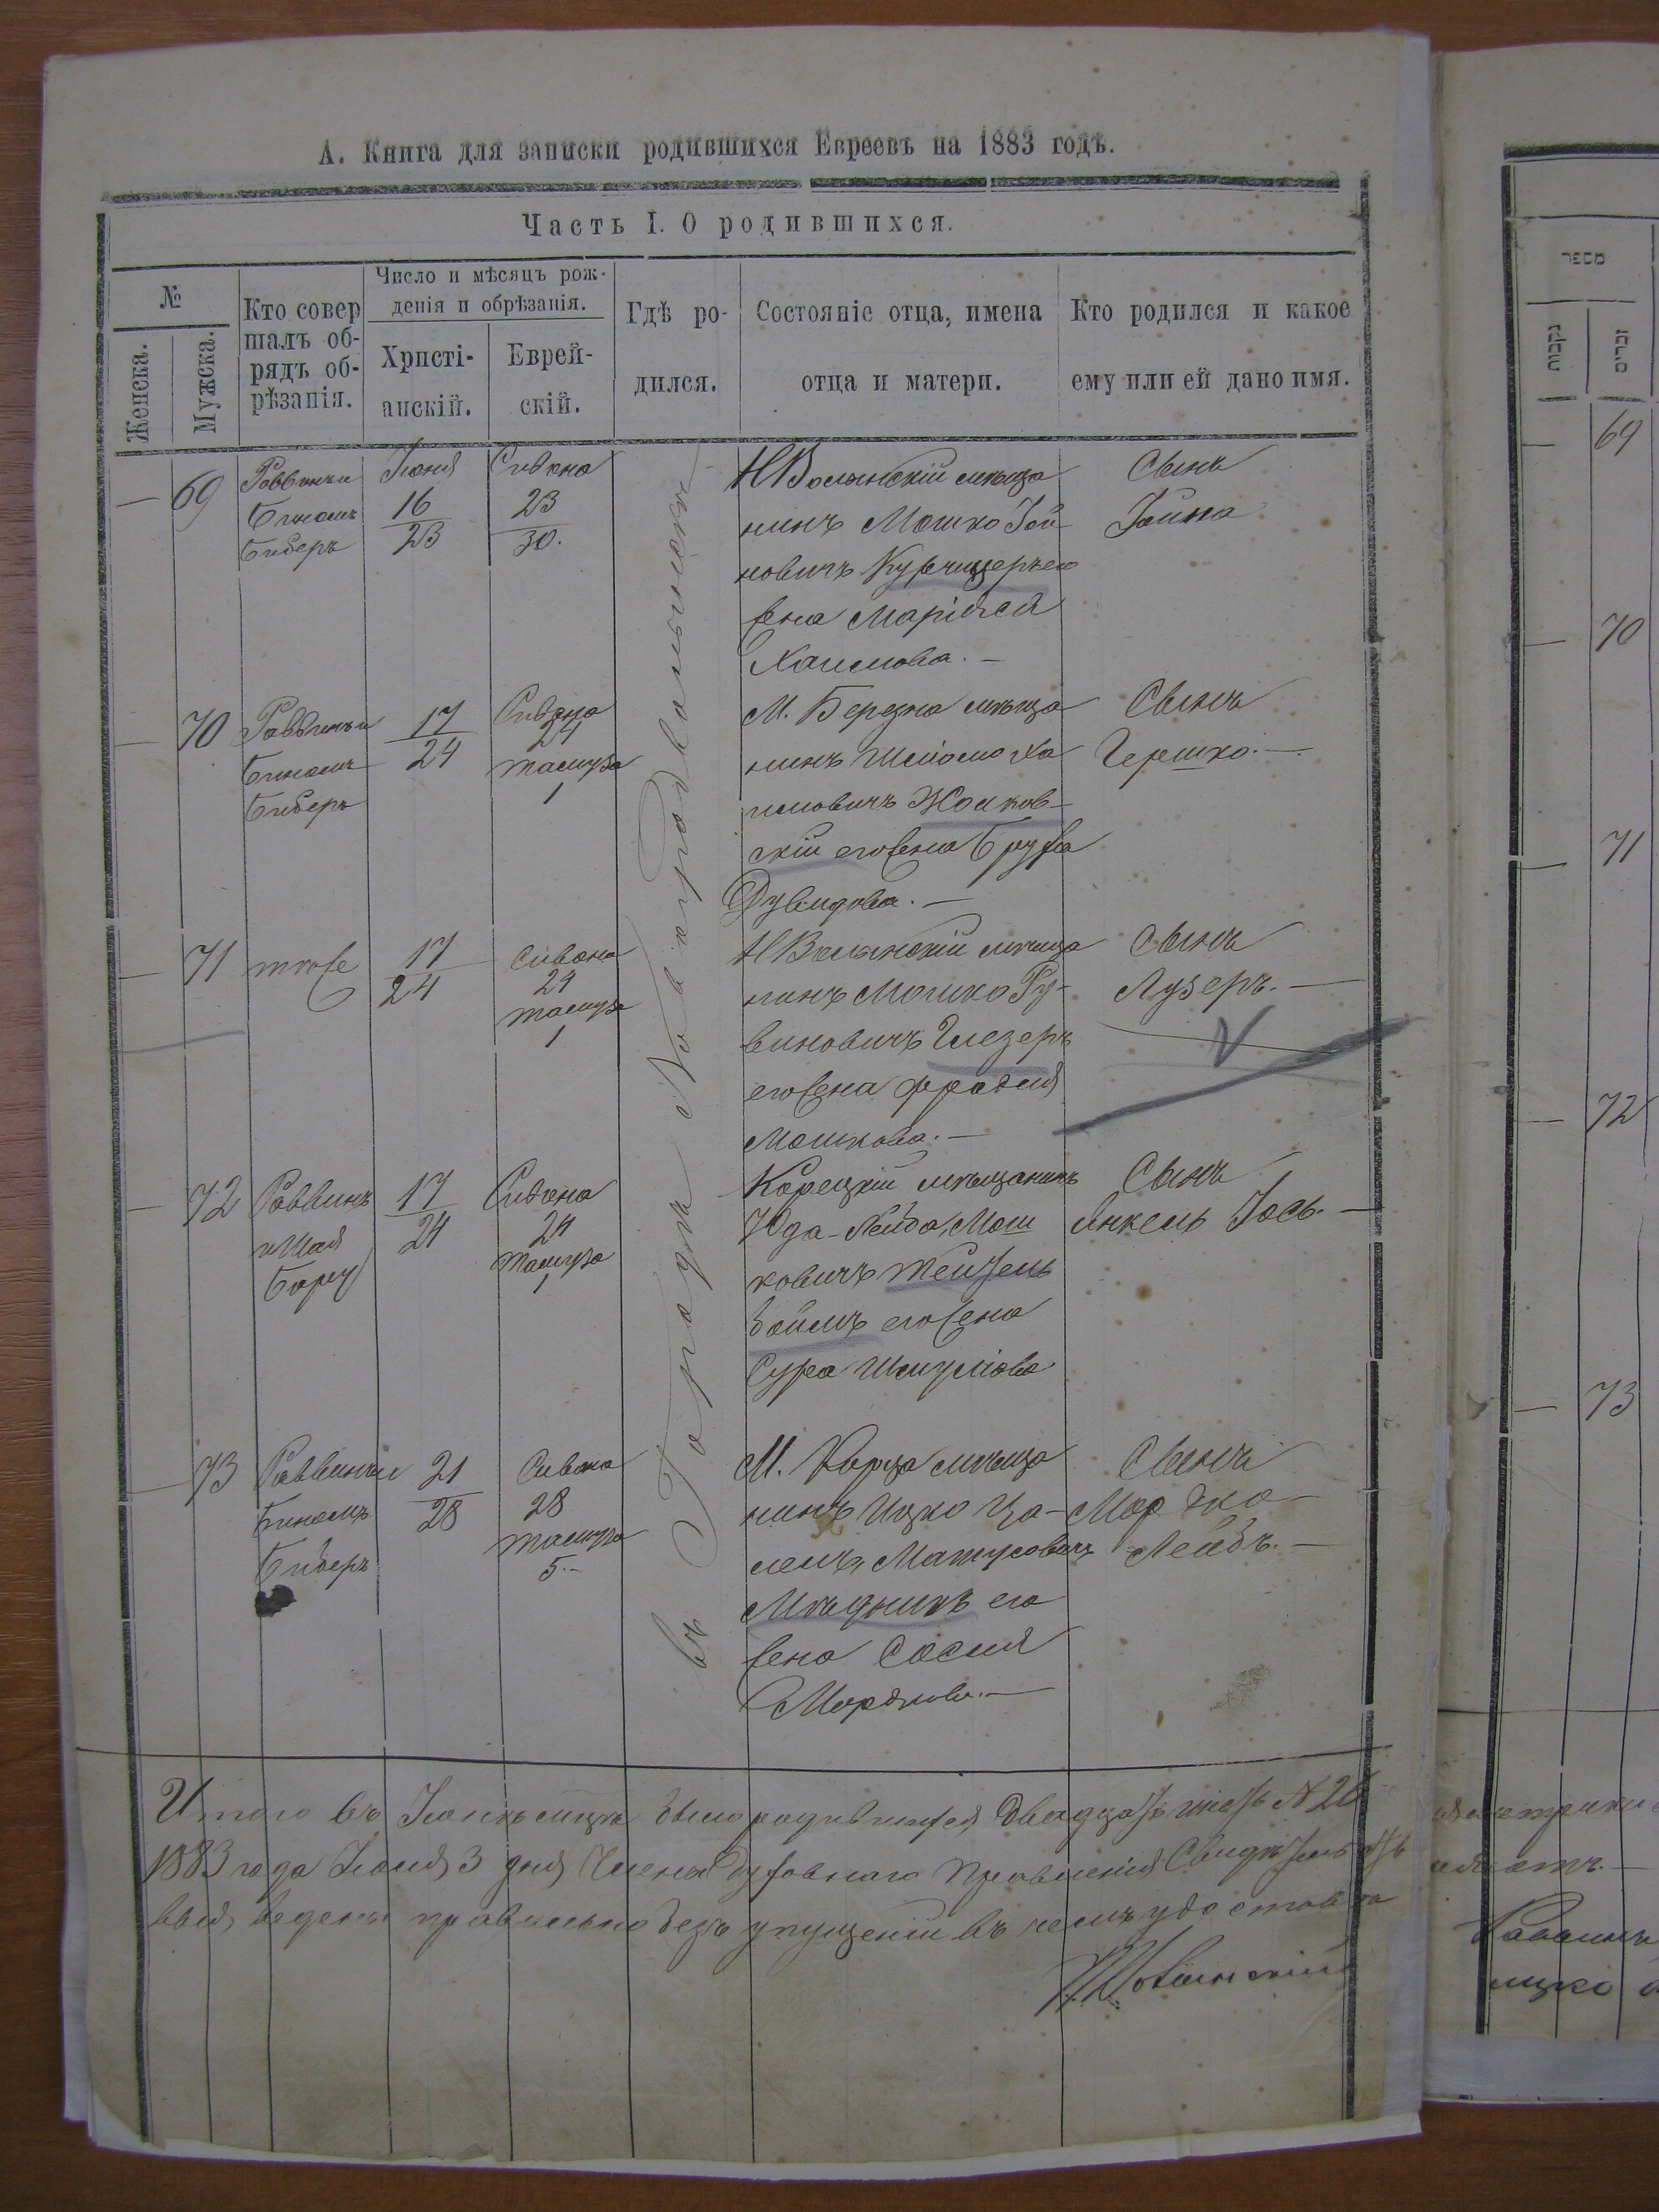 А. Книга для записки родившихся Евреевъ на 1883 годъ.
Часть I. О родившихся.
№
Женска.
Мужска.
Кто совер
шалъ об-
рядъ об-
рѣзанія.
Число и мѣсяцъ рож-
денія и обрѣзанія.
Христі-
анскій.
Еврей-
скій.
Гдѣ ро-
дился.
Состояніе отца, имена
отца и матери.
Кто родился и какое
ему или ей дано имя.
въ Городѣ Новоградволынскѣ
— 69
Раввинъ и
Биномъ
Биберъ
Іюня
16
23
Сивана
23
30.
НВолынскій мѣща
нинъ Мошко Іой-
новичъ Курчицеръ его
жена Маріася
Хаимова. —
Сынъ
Іойна
— 70
Раввинъ и
Биномъ
Биберъ
17
24
Сивана
24
Тамуза
1
М. Березна мѣща
нинъ Шліомо Ха
имовичъ Жолков-
скій его жена Бруха
Дувидова. —
Сынъ
Гершко. —
— 71
тоже
17
24
Сивана
24
Тамуза
1
НВолынскій мѣща
нинъ Мошко Ру-
виновичъ Глезеръ
его жена Фрадля
Мошкова. —
Сынъ
Лузеръ. —
— 72
Раввинъ
и Шая
Борщ
17
24
Сивана
24
Тамуза
1
Корецкій мѣщанинъ
Юда-Лейба Мош
ковичъ Тейтель
боймъ его жена
Сура Шмуліова
Сынъ
Янкель Іось. —
— 73
Раввинъ и
Биномъ
Биберъ
21
28
Сивана
28
Тамуза
5. –
М. Корца мѣща
нинъ Ицко Ца-
лелъ Матусовичъ
Мѣдникъ его
жена Сосия
Мордкова. —
Сынъ
Мордко-
Лейбъ. —
Итого въ Іюнѣ мцѣ было родившихся двадцать шесть № 26
1883 года Іюля 3 дня Члена Духовнаго Правленія
ведены правильно безъ упущеній въ чемъ удостовѣ
69
70
71
72
73